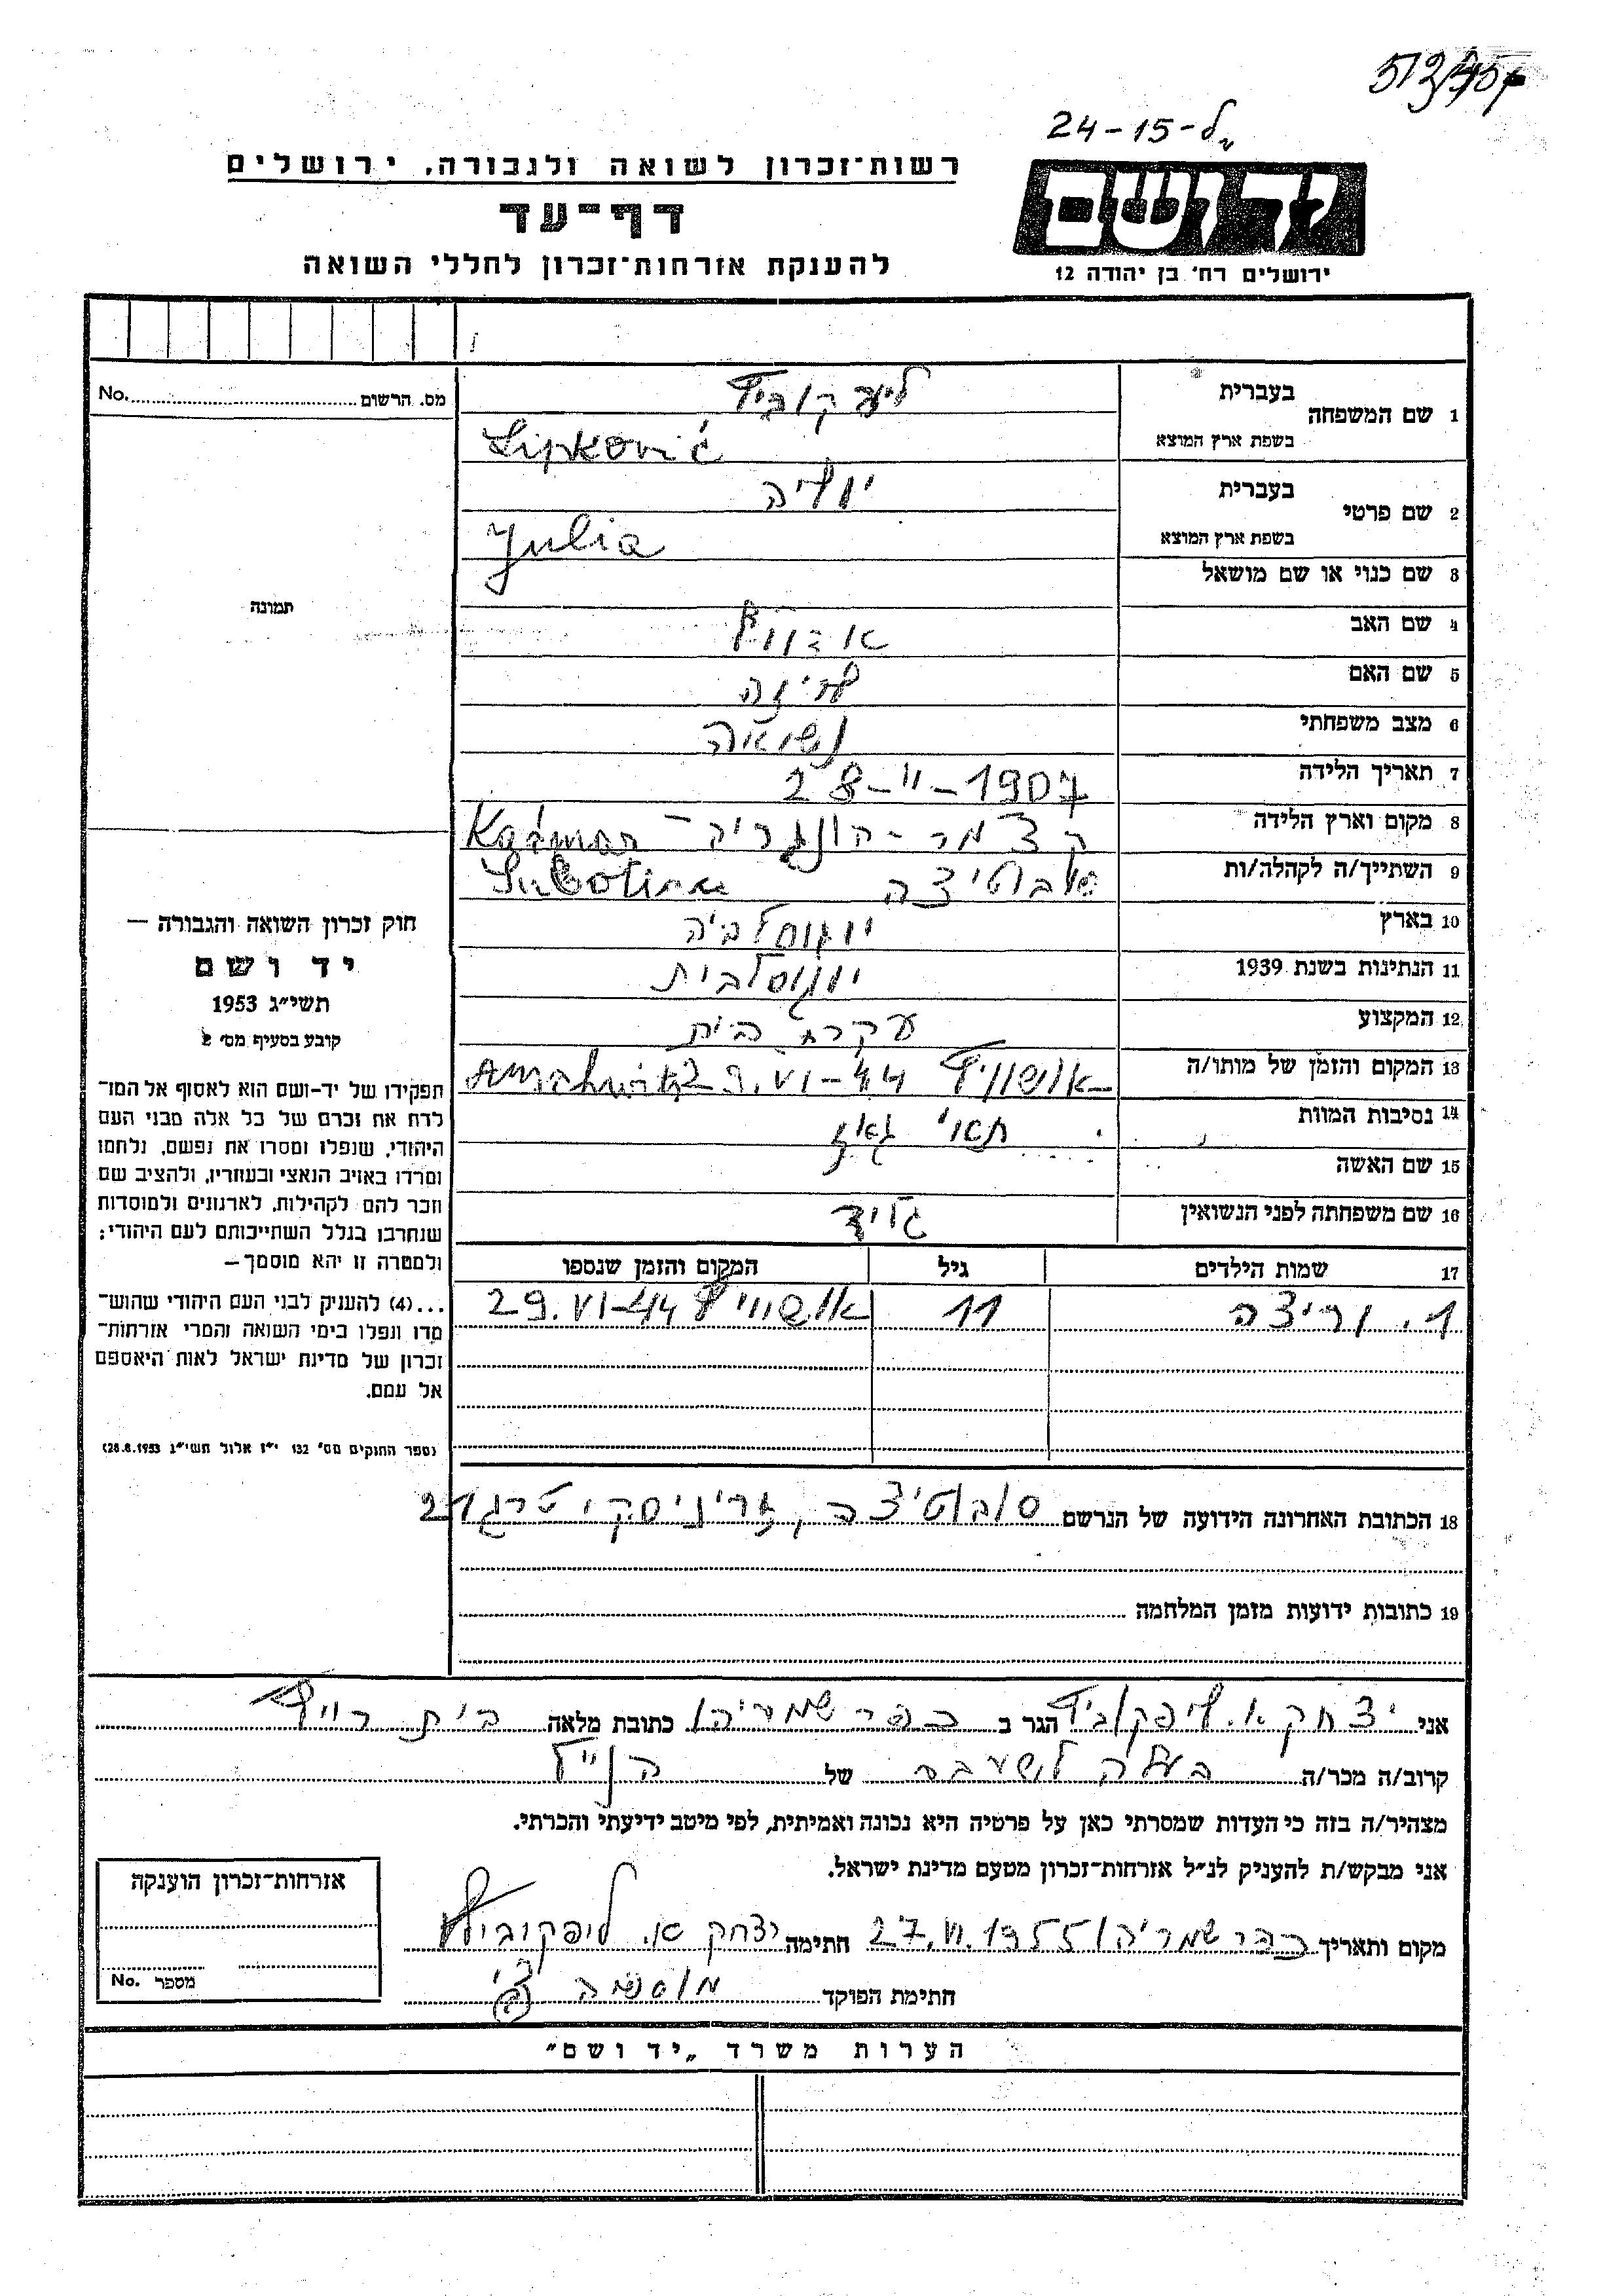 24-15-ל
רשות־זכרון לשואה ולגבורה, ירושלים
דף־עד
להענקת אזרחות־זכרון לחללי השואה
יד ושם
ירושלים רח׳ בן יהודה 12
מס. הרשום No.
תמונה
1 שם המשפחה בעברית ליפקוביץ
בשפת ארץ המוצא Lipković
2 שם פרטי בעברית יוליה
בשפת ארץ המוצא Julia
3 שם כנוי או שם מושאל
4 שם האב אדולף
5 שם האם ליזה
6 מצב משפחתי נשואה
7 תאריך הלידה 28-II-1907
8 מקום וארץ הלידה קצמר - הונגריה -
9 השתייך/ה לקהלה/ות סובוטיצה Subotica
10 בארץ יוגוסלביה
11 הנתינות בשנת 1939 יוגוסלבית
12 המקצוע עקרת בית
13 המקום והזמן של מותו/ה אושוויץ 29.VI-44
14 נסיבות המוות תאי גאז
15 שם האשה
16 שם משפחתה לפני הנשואין
17 שמות הילדים גיל המקום והזמן שנספו
1. וריצה 11 אושוויץ 29.VI-44
18 הכתובת האחרונה הידועה של הנרשם סובוטיצה, זריניסקי טרג 21
19 כתובות ידועות מזמן המלחמה
חוק זכרון השואה והגבורה —
יד ושם
תשי״ג 1953
קובע בסעיף מס׳ 2
תפקידו של יד-ושם הוא לאסוף אל המו־
לדת את זכרם של כל אלה מבני העם
היהודי, שנפלו ומסרו את נפשם, נלחמו
ומרדו באויב הנאצי ובעוזריו, ולהציב שם
וזכר להם לקהילות, לארגונים ולמוסדות
שנחרבו בגלל השתייכותם לעם היהודי;
ולמטרה זו יהא מוסמך —
...(4) להעניק לבני העם היהודי שהוש־
מדו ונפלו בימי השואה והמרי אזרחות־
זכרון של מדינת ישראל לאות היאספם
אל עמם.
(ספר החוקים מס׳ 132 י״ז אלול תשי״ג 28.8.1953)
אני יצחק א. ליפקוביץ הגר ב כפר שמריהו כתובת מלאה בית
קרוב/ה מכר/ה בעלה לשעבר של הנ״ל
מצהיר/ה בזה כי העדות שמסרתי כאן על פרטיה היא נכונה ואמיתית, לפי מיטב ידיעתי והכרתי.
אני מבקש/ת להעניק לנ״ל אזרחות־זכרון מטעם מדינת ישראל.
מקום ותאריך כפר שמריהו 27.VI.1955 חתימה יצחק א. ליפקוביץ
חתימת הפוקד
אזרחות־זכרון הוענקה
מספר No.
הערות משרד „יד ושם״